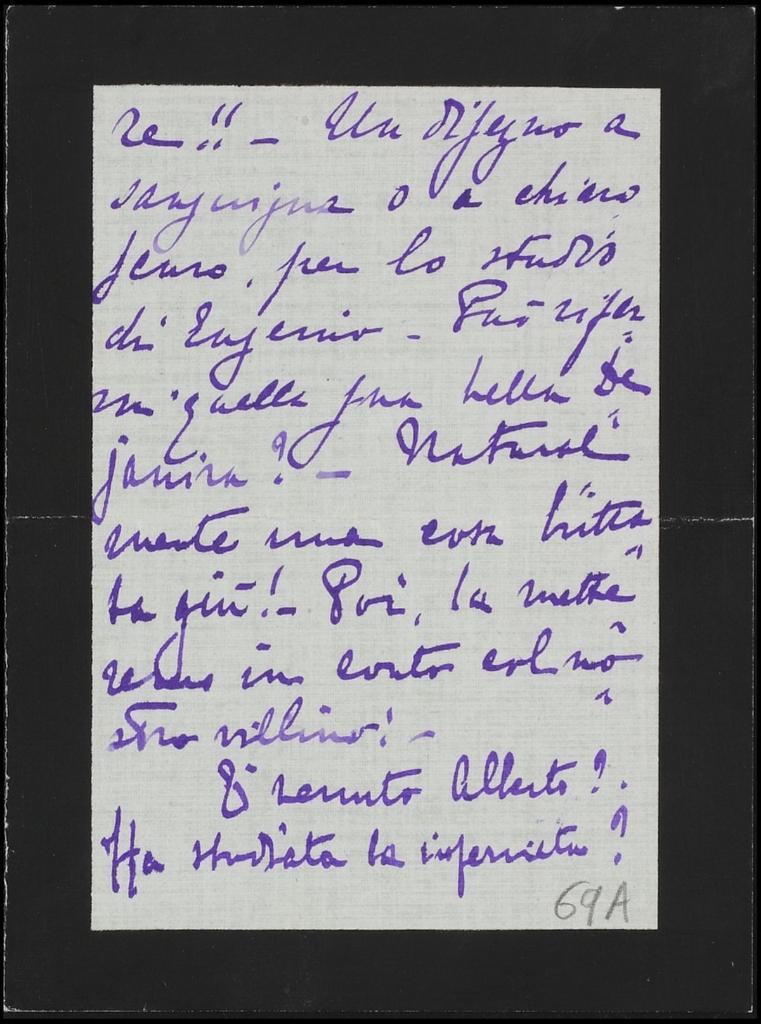 re!! - Un disegno a
sanguigna o a chiaro
scuro, per lo studio
di Eugenio - Può rifar
mi quella sua bella De
janira? - Natural
mente una cosa butta
ta giù! - Poi, la mette
remo in conto col no
stro villino! -
È venuto Alberto?.
Ha studiata la
69A